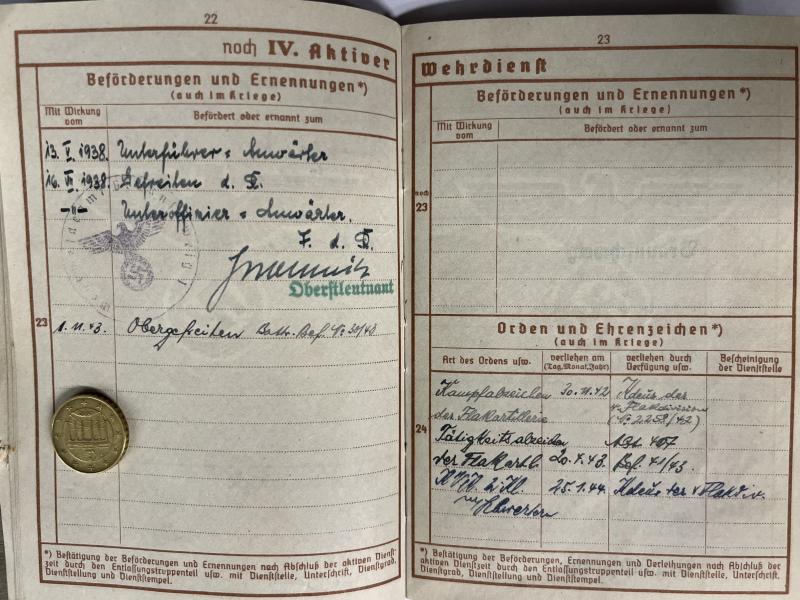 22
noch IV. Aktiver
Beförderungen und Ernennungen*)
(auch im Kriege)
Mit Wirkung vom
Befördert oder ernannt zum
13. V. 1938. Unterführer = Anwärter
16. 1938. Gefreiten d. R.
-"- Unteroffizier = Anwärter.
F. d. R.
Oberstleutnant
23
1. 11. 43. Obergefreiten Battr. Bef. 43
*) Bestätigung der Beförderungen und Ernennungen nach Abschluß der aktiven Dienst-
zeit durch den Entlassungstruppenteil usw. mit Dienststelle, Unterschrift, Dienstgrad,
Dienststellung und Dienststempel.
23
Wehrdienst
Beförderungen und Ernennungen*)
(auch im Kriege)
Mit Wirkung vom
Befördert oder ernannt zum
noch
23
Orden und Ehrenzeichen*)
(auch im Kriege)
Art des Ordens usw.
verliehen am
(Tag, Monat, Jahr)
verliehen durch
Verfügung usw.
Bescheinigung
der Dienststelle
24
Kampfabzeichen 20. 11. 42 Kdeur der
der Flakartillerie Flakdivision
Tätigkeitsabzeichen
der Flakartl. 20. 4. 43. Bef. 41/43.
KVK 2. Kl. 25. 1. 44. Kdeur der Flakdiv.
m/Schwertern
*) Bestätigung der Beförderungen, Ernennungen und Verleihungen nach Abschluß der
aktiven Dienstzeit durch den Entlassungstruppenteil usw. mit Dienststelle, Unterschrift, Dienstgrad,
Dienststellung und Dienststempel.